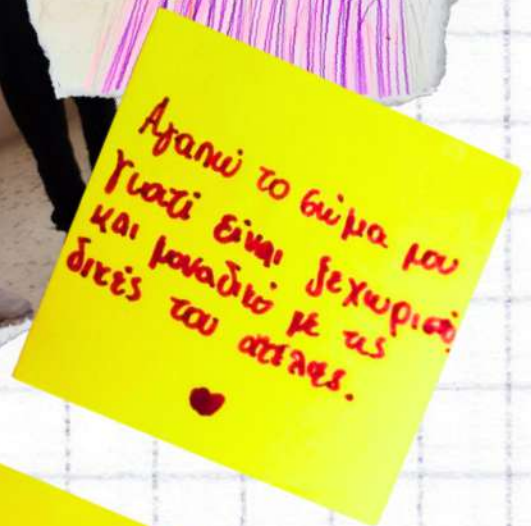 Αγαπώ το σώμα μου
Γιατί είναι ξεχωριστό
και μοναδικό με τις
δικές του ατέλειες.